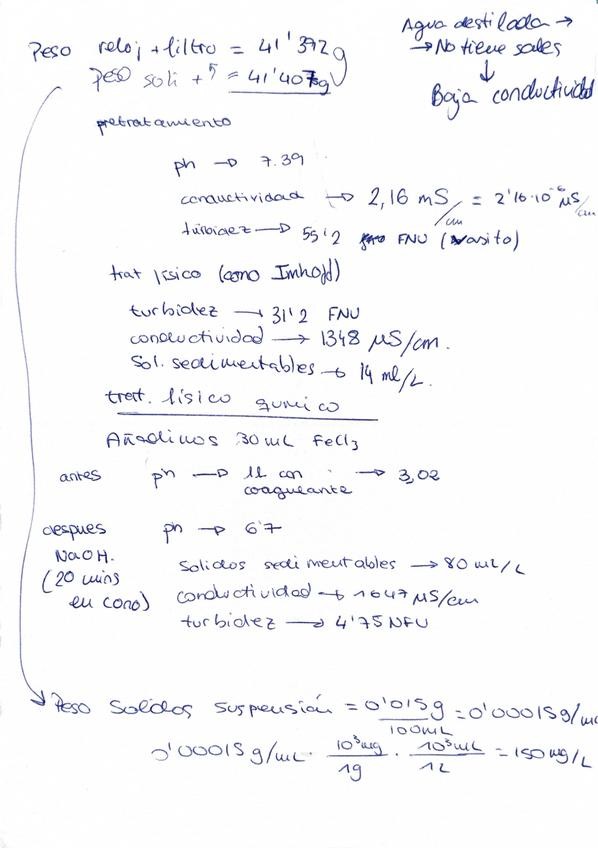 Agua destilada →
→ No tiene sales
↓
Baja conductividad
Peso reloj + filtro = 41'392g
Peso soli + = 41'407g
pretratamiento
ph → 7.39
conductividad → 2,16 mS/cm = 2'16·10⁻⁶ µS/cm
turbidez → 55'2 FNU (vasito)
trat físico (cono Imhoff)
turbidez → 31'2 FNU
conductividad → 1348 µS/cm.
Sol. sedimentables → 14 ml/L.
trat. físico químico
Añadimos 30 mL FeCl₃
antes ph → 1L con coagulante → 3,02
despues NaOH. (20 mins en cono)
ph → 6'7
Solidos sedimentables → 80 mL/L
conductividad → 1647 µS/cm
turbidez → 4'75 NFU
Peso Solidos suspensión = 0'015g/100mL = 0'00015 g/mL
0'00015 g/mL · 10³mg/1g · 10³mL/1L = 150 mg/L